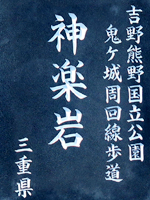 吉野熊野国立公園
鬼ケ城周回線歩道
神楽岩
三重県